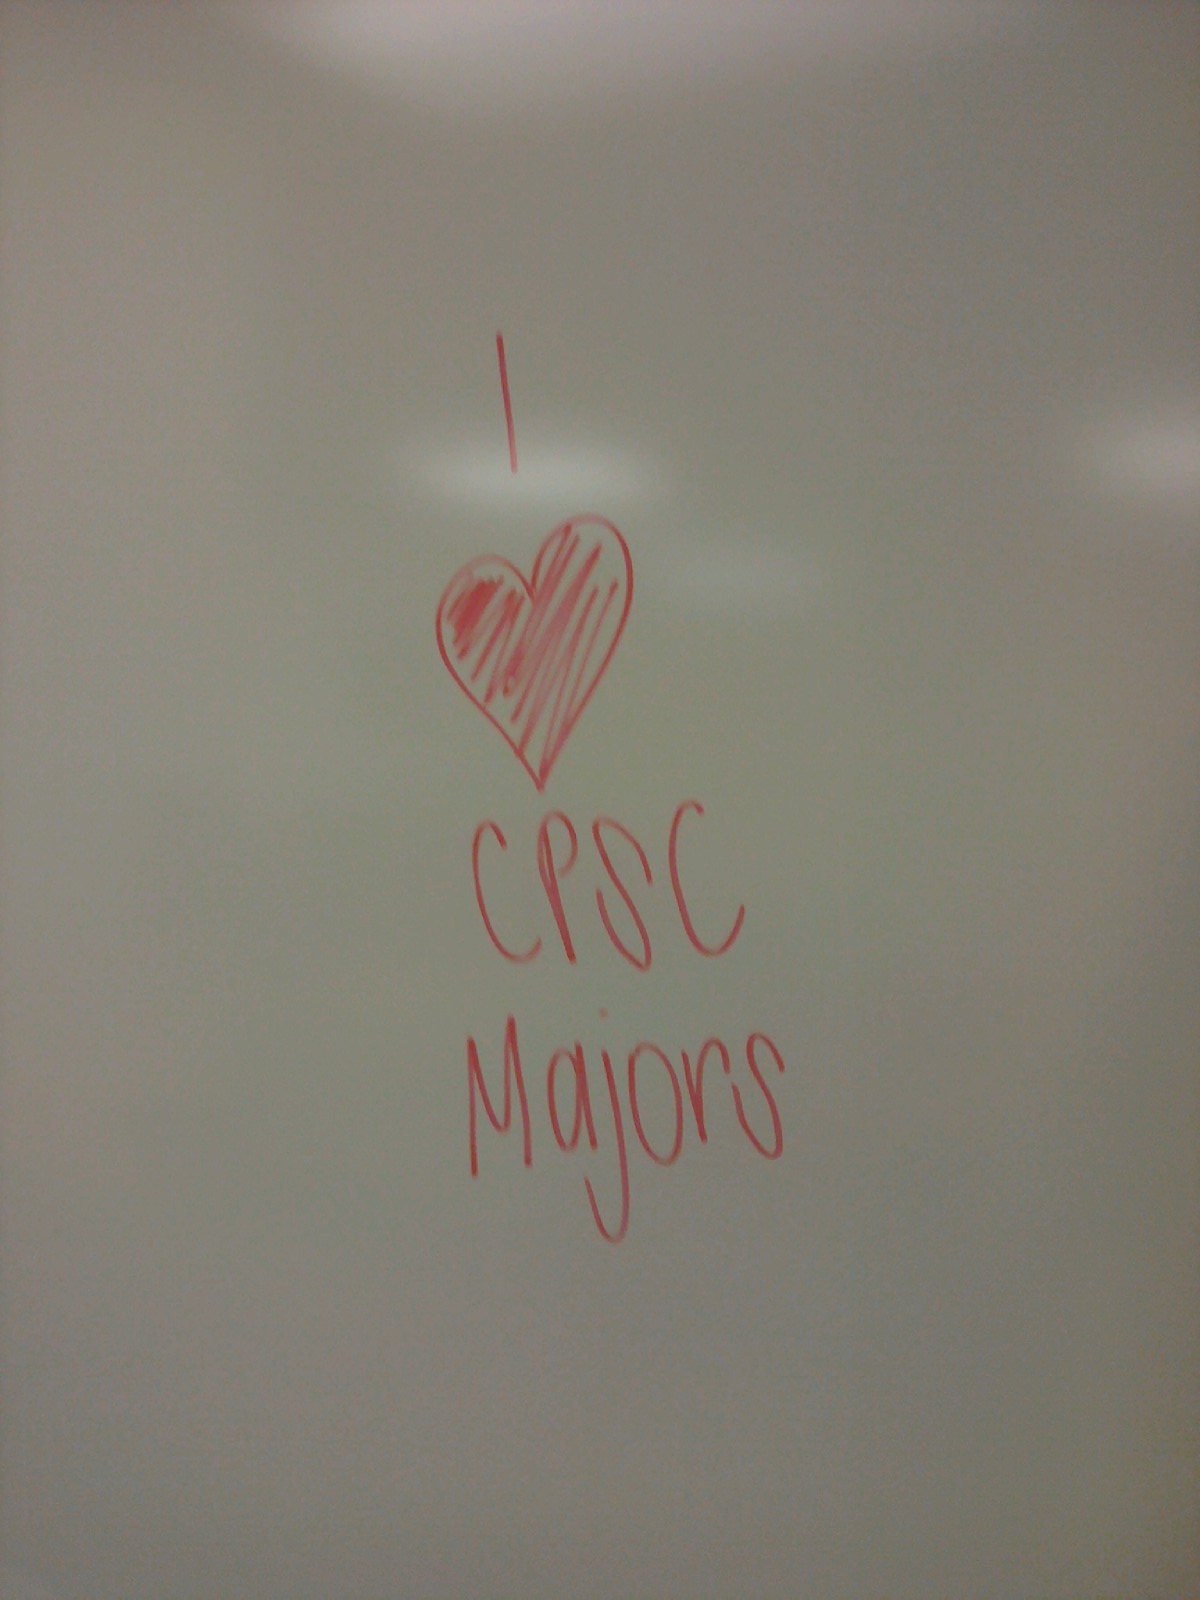 I
♥
CPSC
Majors